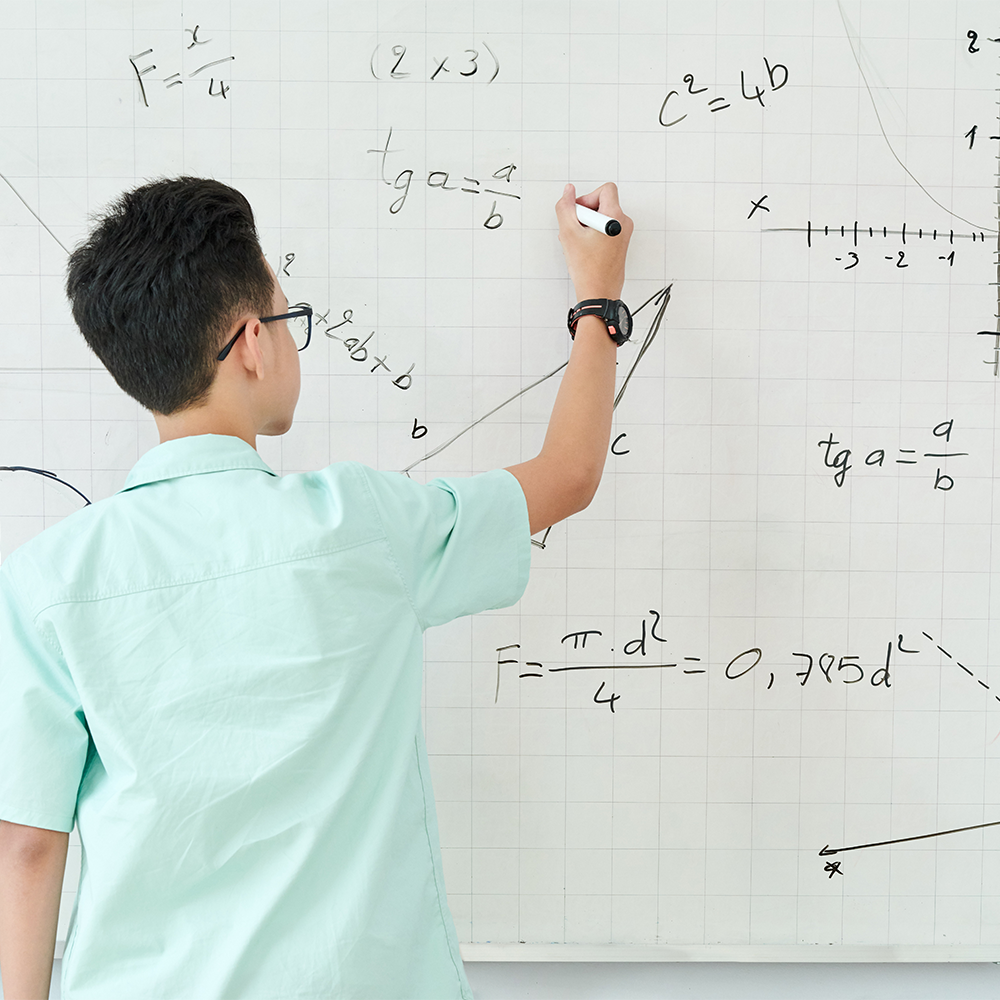 F = x/4
(2 x 3)
c² = 4ᵇ
2
1
tg a = a/b
x
-3 -2 -1
2
x 2ab x b
b
c
tg a = a/b
F = π . d²/4 = 0,785d²